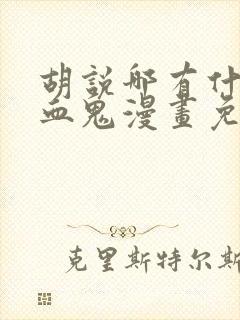 胡說哪有什
血鬼漫畫免
克里斯特尔斯